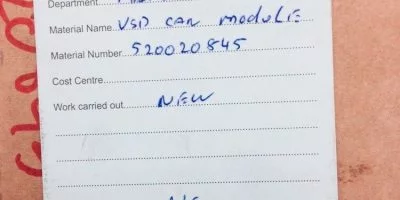 Department
Material Name VSD CAN MODULE
Material Number 520020845
Cost Centre
Work carried out NEW